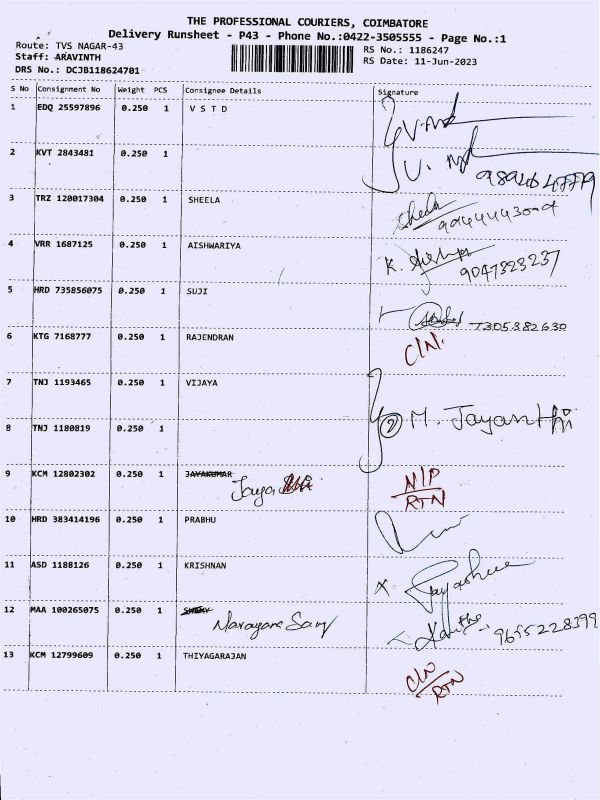 THE PROFESSIONAL COURIERS, COIMBATORE
Delivery Runsheet - P43 - Phone No.:0422-3505555 - Page No.:1
Route: TVS NAGAR-43
Staff: ARAVINTH
DRS No.: DCJB118624701
RS No.: 1186247
RS Date: 11-Jun-2023
S No Consignment No Weight PCS Consignee Details Signature
1 EDQ 25597896 0.250 1 V S T D
2 KVT 2843481 0.250 1
3 TRZ 120017304 0.250 1 SHEELA Sheela
4 VRR 1687125 0.250 1 AISHWARIYA K. 9047323237
5 HRD 735856075 0.250 1 SUJI 7305382630
6 KTG 7168777 0.250 1 RAJENDRAN C/N.
7 TNJ 1193465 0.250 1 VIJAYA
8 TNJ 1180819 0.250 1 2 M. Jayanthi
9 KCM 12802302 0.250 1 JAYAKUMAR Jaya N/P RTN
10 HRD 383414196 0.250 1 PRABHU
11 ASD 1188126 0.250 1 KRISHNAN
12 MAA 100265075 0.250 1 Narayana Samy 9695228399
13 KCM 12799609 0.250 1 THIYAGARAJAN C/N RTN